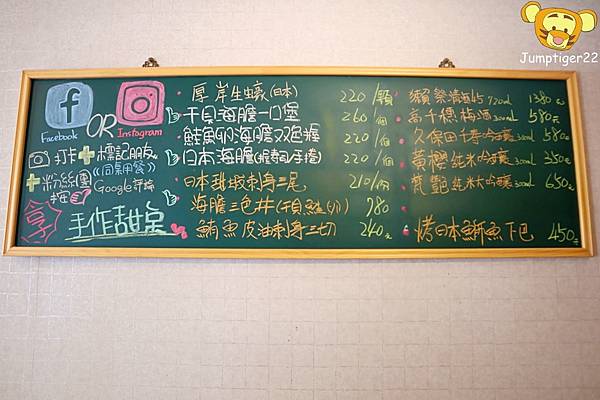 Jumptiger22
Facebook OR Instagram
打卡+標記朋友
((同桌用餐))
+粉絲團 Google評論
按
享 手作甜点
厚岸生蠔(日本) 220/顆
干貝海膽一口堡 260/個
鮭魚卵海膽双色握 220/個
日本海膽(握壽司/手捲) 220/個
日本甜蝦刺身三尾 210/份
海膽三色丼(干貝鮭卵) 780
鮪魚皮油刺身三切 240元
獺祭清酒45 720ml 1380元
高千穗梅酒300ml 580元
久保田千寿吟釀300ml 580元
純米吟釀300ml 350元
梵艷純米大吟釀300ml 650元
烤日本鰤魚下巴 450元